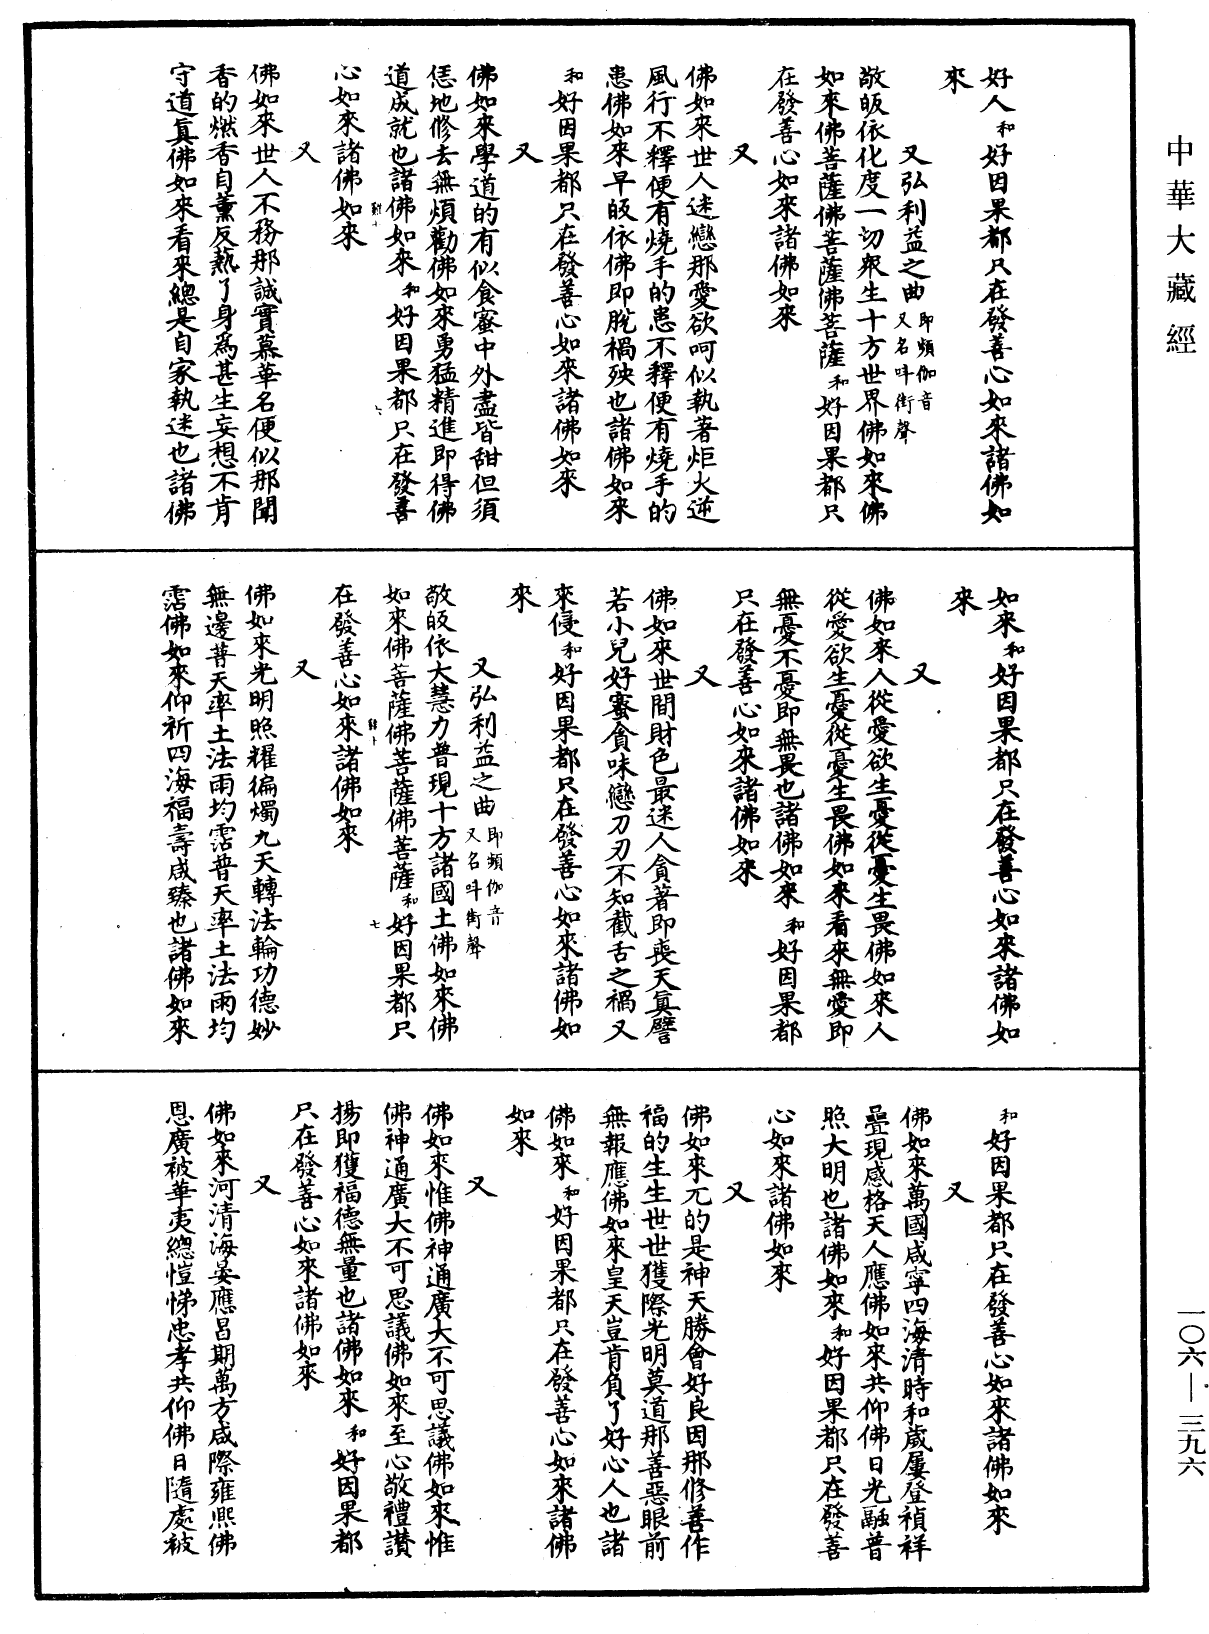 中華大藏經
好人和好因果都只在發善心如來諸佛如
來
又弘利益之曲即頻伽音又名呌街聲
敬皈依化度一切衆生十方世界佛如來佛
如來佛菩薩佛菩薩佛菩薩和好因果都只
在發善心如來諸佛如來
又
佛如來世人迷戀那愛欲呵似執著炬火逆
風行不釋便有燒手的患不釋便有燒手的
患佛如來早皈依佛即脫禍殃也諸佛如來
和好因果都只在發善心如來諸佛如來
又
佛如來學道的有似食蜜中外盡皆甜但須
恁地修去無煩勸佛如來勇猛精進即得佛
道成就也諸佛如來和好因果都只在發善
六
心如來諸佛如來
又
佛如來世人不務那誠實慕華名便似那聞
香的燃香自薰反熱了身為甚生妄想不肯
守道真佛如來看來總是自家執迷也諸佛
如來和好因果都只在發善心如來諸佛如
來
又
佛如來人從愛欲生憂從憂生畏佛如來人
從愛欲生憂從憂生畏佛如來看來無愛即
無憂不憂即無畏也諸佛如來和好因果都
只在發善心如來諸佛如來
又
佛如來世間財色最迷人貪著即喪天真譬
若小兒好蜜貪味戀刀刃不知截舌之禍又
來侵和好因果都只在發善心如來諸佛如
來
又弘利益之曲即頻伽音又名呌街聲
敬皈依大慧力普現十方諸國土佛如來佛
如來佛菩薩佛菩薩佛菩薩和好因果都只
七
在發善心如來諸佛如來
又
佛如來光明照耀徧燭九天轉法輪功德妙
無邊普天率土法雨均霑普天率土法雨均
霑佛如來仰祈四海福壽咸臻也諸佛如來
和好因果都只在發善心如來諸佛如來
又
佛如來萬國咸寧四海清時和歲屢登禎祥
疊現感格天人應佛如來共仰佛日光融普
照大明也諸佛如來和好因果都只在發善
心如來諸佛如來
又
佛如來兀的是神天勝會好良因那修善作
福的生生世世獲際光明莫道那善惡眼前
無報應佛如來皇天豈肯負了好心人也諸
佛如來和好因果都只在發善心如來諸佛
如來
又
佛如來惟佛神通廣大不可思議佛如來惟
佛神通廣大不可思議佛如來至心敬禮讃
揚即獲福德無量也諸佛如來和好因果都
只在發善心如來諸佛如來
又
佛如來河清海晏應昌期萬方咸際雍熙佛
恩廣被華夷總愷悌忠孝共仰佛日隨處被
一〇六—三九六